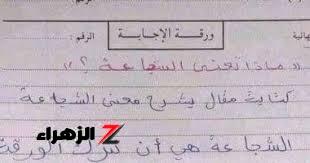 ورقة الإجابة
الرقم :
الرقم :
« ماذا تعني الشجاعة ؟ »
كتابة مقال يشرح معنى الشجاعة
الزهراء
الشجاعة هي أن تترك الورقة